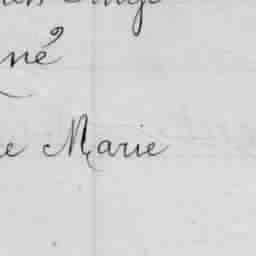 né
e Marie